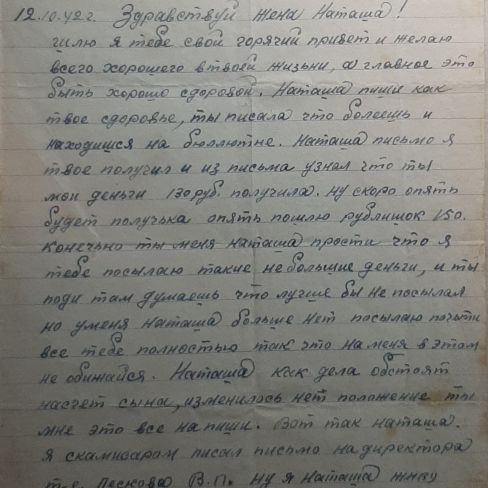 12.10.42 г. Здравствуй жена Наташа!
шлю я тебе свой горячий привет и желаю
всего хорошего в твоей жизьни, а главное это
быть хорошо здоровой. Наташа пиши как
твое здоровье, ты писала что болеешь и
находишся на бюллютне. Наташа письмо я
твое получил и из письма узнал что ты
мои деньги 130 руб. получила. Ну скоро опять
будет получька опять пошлю рублишок 150.
Конечьно ты меня Наташа прости что я
тебе посылаю такие небольшие деньги, и ты
поди там думаешь что лучше бы не посылал
но уменя Наташа больше нет посылаю почьти
все тебе полностью так что на меня в этом
не обижайся. Наташа как дела обстоят
насчет сына, изменилось нет положение ты
мне это все напиши. Вот так наташа.
Я скамиваром писал письмо надиректора
т-е. Лескова В.П. ну я Наташа живу